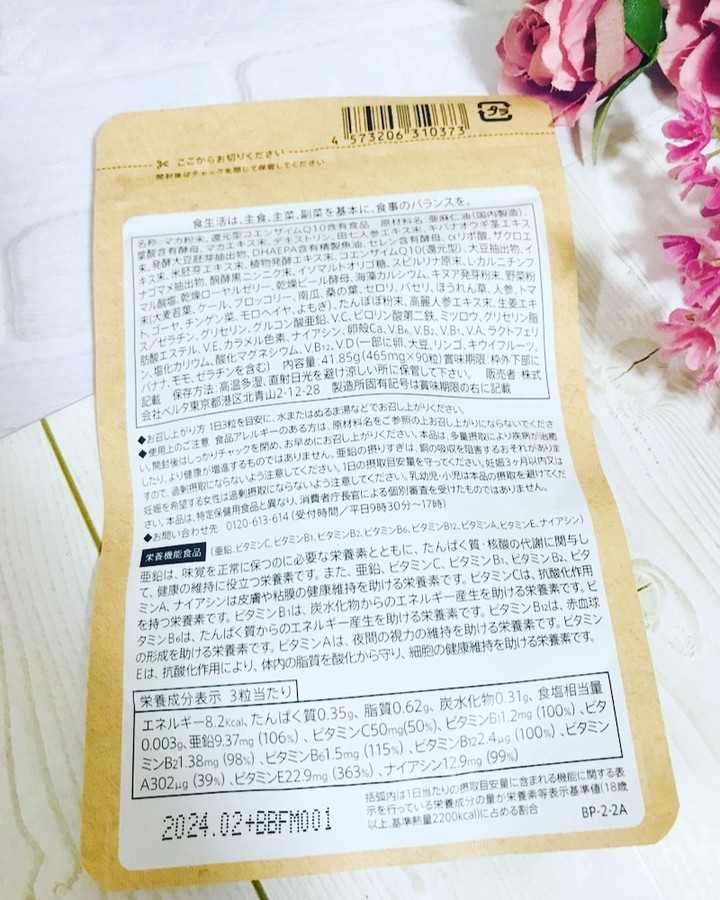 4 573206 310373
プラ
ここからお切りください
開封後はチャックを閉じて保管してください
食生活は、主食、主菜、副菜を基本に、食事のバランスを。
名称 マカ粉末、還元型コエンザイムQ10含有食品 原材料名 亜麻仁油(国内製造)、
葉酸含有酵母、マカエキス末、デキストリン、田七人参エキス末、キバナオウギ茎エキス
末、発酵大豆胚芽抽出物、DHAEPA含有精製魚油、セレン含有酵母、αリポ酸、ザクロエ
キス末、米胚芽エキス末、植物発酵エキス末、コエンザイムQ10(還元型)、大豆抽出物、イ
ナゴマメ抽出物、醗酵黒ニンニク末、イソマルトオリゴ糖、スピルリナ原末、L-カルニチンフ
マル酸塩、乾燥ローヤルゼリー、乾燥ビール酵母、海藻カルシウム、キヌア発芽粉末、野菜粉
末(大麦若葉、ケール、ブロッコリー、南瓜、桑の葉、セロリ、パセリ、ほうれん草、人参、トマ
ト、ゴーヤ、チンゲン菜、モロヘイヤ、よもぎ)、たんぽぽ粉末、高麗人参エキス末、生姜エキ
ス/ゼラチン、グリセリン、グルコン酸亜鉛、V.C、ピロリン酸第二鉄、ミツロウ、グリセリン脂
肪酸エステル、V.E、カラメル色素、ナイアシン、卵殻Ca、V.B6、V.B2、V.B1、V.A、ラクトフェリ
ン、塩化カリウム、酸化マグネシウム、V.B12、V.D(一部に卵、大豆、リンゴ、キウイフルーツ、
バナナ、モモ、ゼラチンを含む) 内容量:41.85g(465mg×90粒) 賞味期限:枠外下部に
記載 保存方法:高温多湿、直射日光を避け涼しい所に保管して下さい。 販売者:株式
会社ベルタ東京都港区北青山2-12-28 製造所固有記号は賞味期限の右に記載
◆お召し上がり方 1日3粒を目安に、水またはぬるま湯などでお召し上がりください。
◆使用上のご注意 食品アレルギーのある方は、原材料名をご参照の上お召し上がりにならないでくださ
い。開封後はしっかりチャックを閉め、お早めにお召し上がりください。本品は、多量摂取により疾病が治癒
したり、より健康が増進するものではありません。亜鉛の摂りすぎは、銅の吸収を阻害するおそれがありま
すので、過剰摂取にならないよう注意してください。1日の摂取目安量を守ってください。妊娠3ヶ月以内又は
妊娠を希望する女性は過剰摂取にならないよう注意してください。乳幼児・小児は本品の摂取を避けてくだ
さい。本品は、特定保健用食品と異なり、消費者庁長官による個別審査を受けたものではありません。
◆お問い合わせ先 0120-613-614(受付時間/平日9時30分〜17時)
栄養機能食品 (亜鉛、ビタミンC、ビタミンB1、ビタミンB2、ビタミンB6、ビタミンB12、ビタミンA、ビタミンE、ナイアシン)
亜鉛は、味覚を正常に保つのに必要な栄養素とともに、たんぱく質・核酸の代謝に関与し
て、健康の維持に役立つ栄養素です。また、亜鉛、ビタミンC、ビタミンB1、ビタミンB2、ビタ
ミンA、ナイアシンは皮膚や粘膜の健康維持を助ける栄養素です。ビタミンCは、抗酸化作用
を持つ栄養素です。ビタミンB1は、炭水化物からのエネルギー産生を助ける栄養素です。ビ
タミンB6は、たんぱく質からのエネルギー産生を助ける栄養素です。ビタミンB12は、赤血球
の形成を助ける栄養素です。ビタミンAは、夜間の視力の維持を助ける栄養素です。ビタミン
Eは、抗酸化作用により、体内の脂質を酸化から守り、細胞の健康維持を助ける栄養素です。
栄養成分表示 3粒当たり
エネルギー8.2Kcal、たんぱく質0.35g、脂質0.62g、炭水化物0.31g、食塩相当量
0.003g、亜鉛9.37mg (106%) 、ビタミンC50mg(50%)、ビタミンB11.2mg (100%) 、ビタ
ミンB21.38mg (98%) 、ビタミンB61.5mg (115%) 、ビタミンB122.4μg (100%) 、ビタミン
A302μg (39%) 、ビタミンE22.9mg (363%) 、ナイアシン12.9mg (99%)
括弧内は1日当たりの摂取目安量に含まれる機能に関する表
示を行っている栄養成分の量が栄養素等表示基準値(18歳
以上、基準熱量2200kcal)に占める割合
2024.02+BBFM001
BP-2-2A